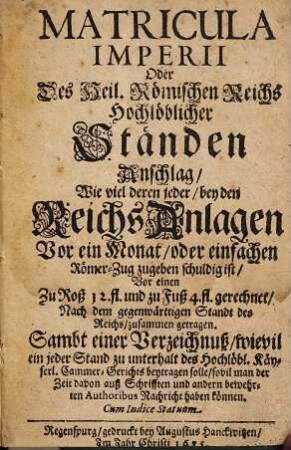 MATRICULA
IMPERII
Oder
Des Heil. Römischen Reichs
Hochlöblicher
Ständen
Anschlag/
Wie viel deren jeder/bey den
ReichsAnlagen
Vor ein Monat/oder einfachen
Römer-Zug zugeben schuldig ist/
Vor einen
Zu Roß 12.fl. und zu Fuß 4.fl. gerechnet/
Nach dem gegenwärttigen Standt des
Reichs/zusamnen getragen.
Sambt einer Verzeichnuß/wievil
ein jeder Stand zu unterhalt des Hochlöbl. Käy-
serl. Cammer-Gerichts beytragen solle/sovil man der
Zeit davon auß Schrifften und andern bewehr-
ten Authoribus Nachricht haben können.
Cum Indice Statuum.
Regenspurg/gedruckt bey Augustus Hanckwitzen/
Im Jahr Christi